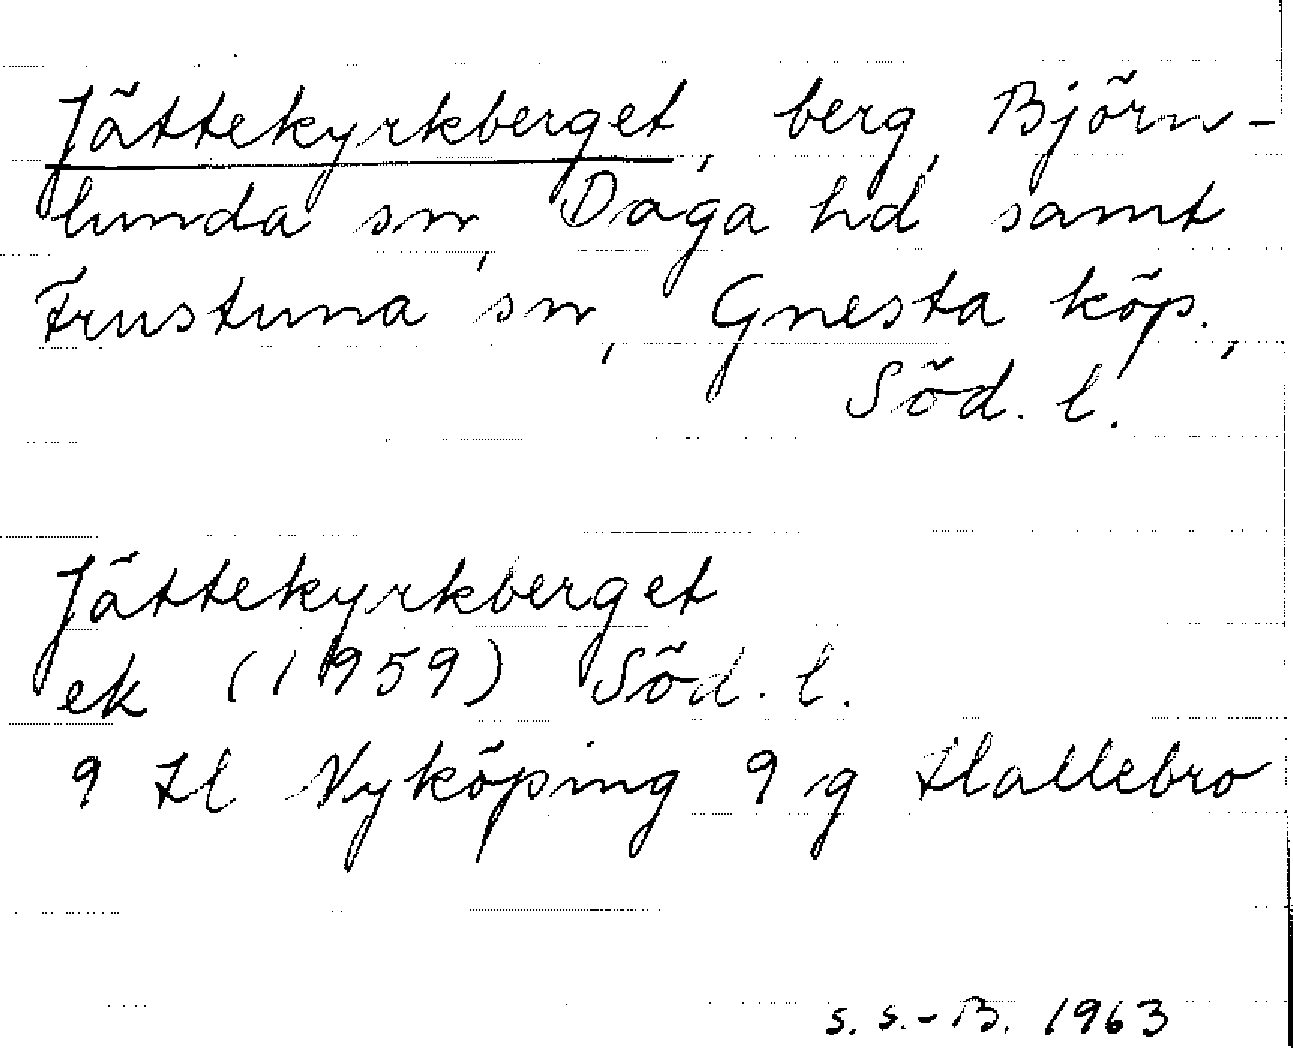 Jättekyrkberget, berg, Björn-
lunda sn, Daga hd samt
Frustuna sn, Gnesta köp.,
Söd. l.
Jättekyrkberget
ek (1959) Söd. l.
9 H Nyköping 9 g Hallebro
S. S.-B. 1963